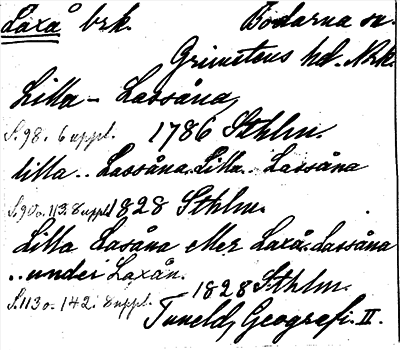 Laxå brk. Bodarna sn.
Grimstens hd. Nrk.
Lilla - Lassåna
S. 98. 6 uppl. 1786 Sthlm.
lilla .. Lassåna. Lilla .. Lassåna
S. 90 o. 113. 8 uppl. 1828 Sthlm.
Lilla Lasåna eller Laxå. Lassåna
.. under Laxån.
1828 Sthlm.
S. 113 o. 142. 8 uppl.
Tuneld, Geografi. II.